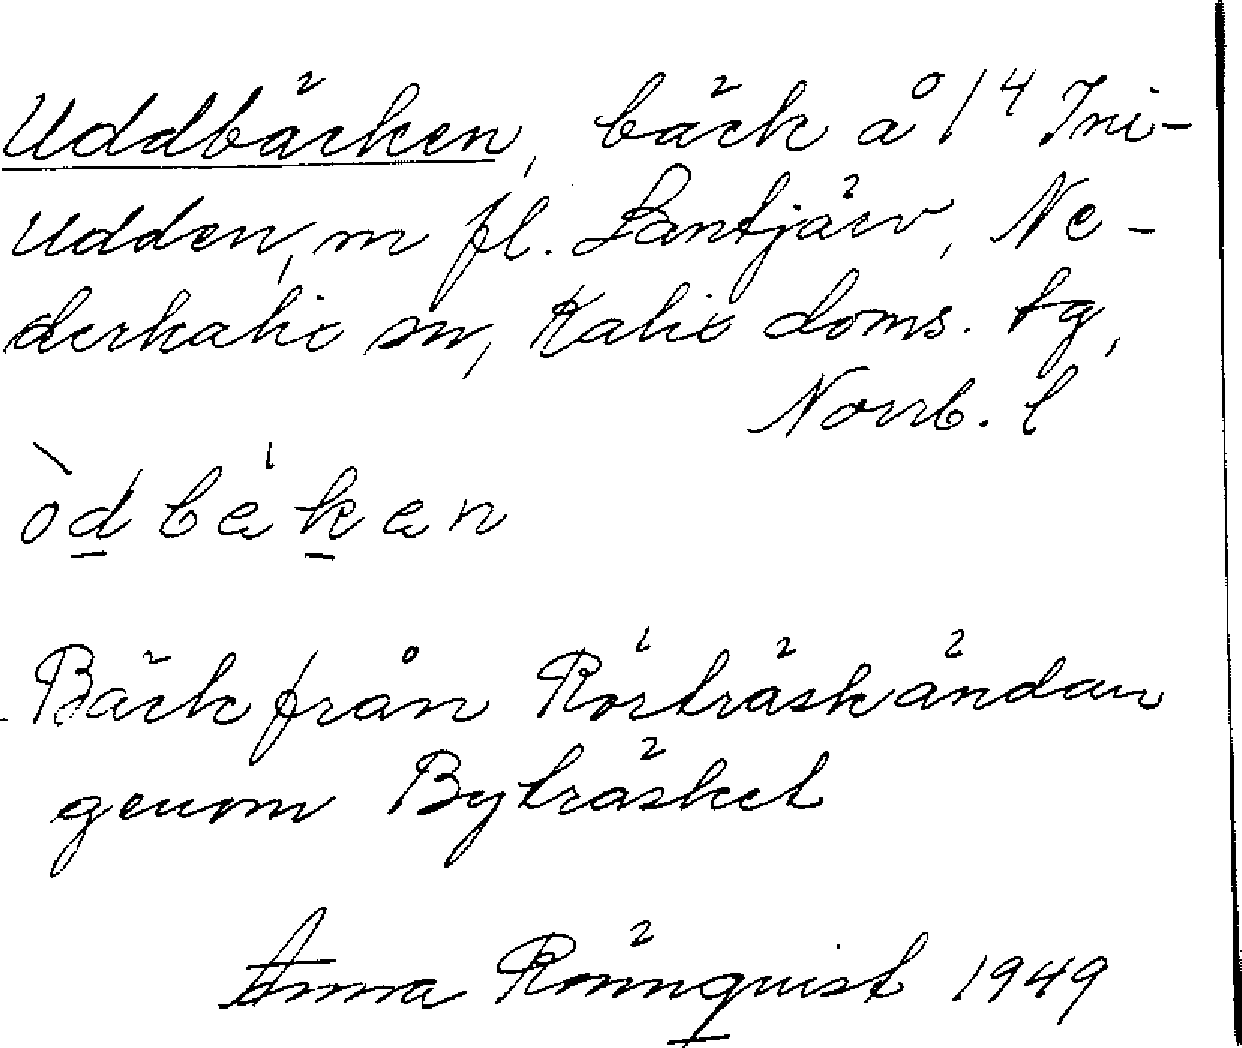 Uddbäcken, bäck å 1/4 Tri-
udden, m fl. Lantjärv, Ne-
derkalix sn, Kalix doms. tg,
Norrb. l
òdbékan
Bäck från Rörträskändan
genom Byträsket
Anna Rönnquist 1949